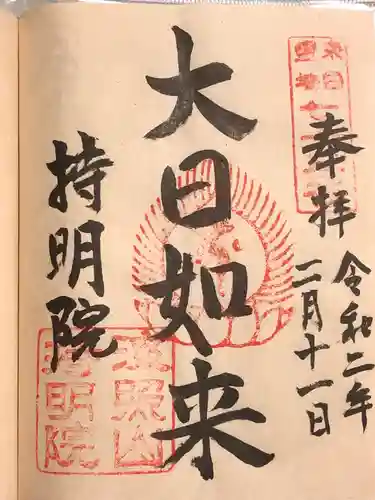 奉拝
令和二年
二月十一日
大日如来
持明院
持明院